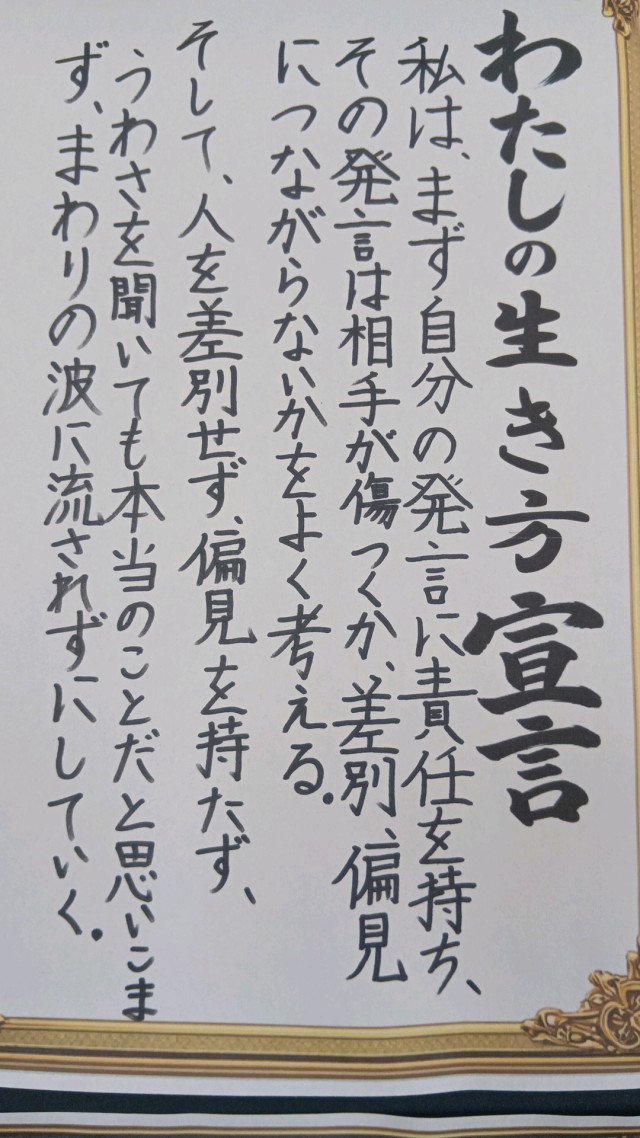 わたしの生き方宣言
私は、まず自分の発言に責任を持ち、
その発言は相手が傷つくか、差別、偏見
につながらないかをよく考える。
そして、人を差別せず、偏見を持たず、
うわさを聞いても本当のことだと思いこま
ず、まわりの波に流されずにしていく。